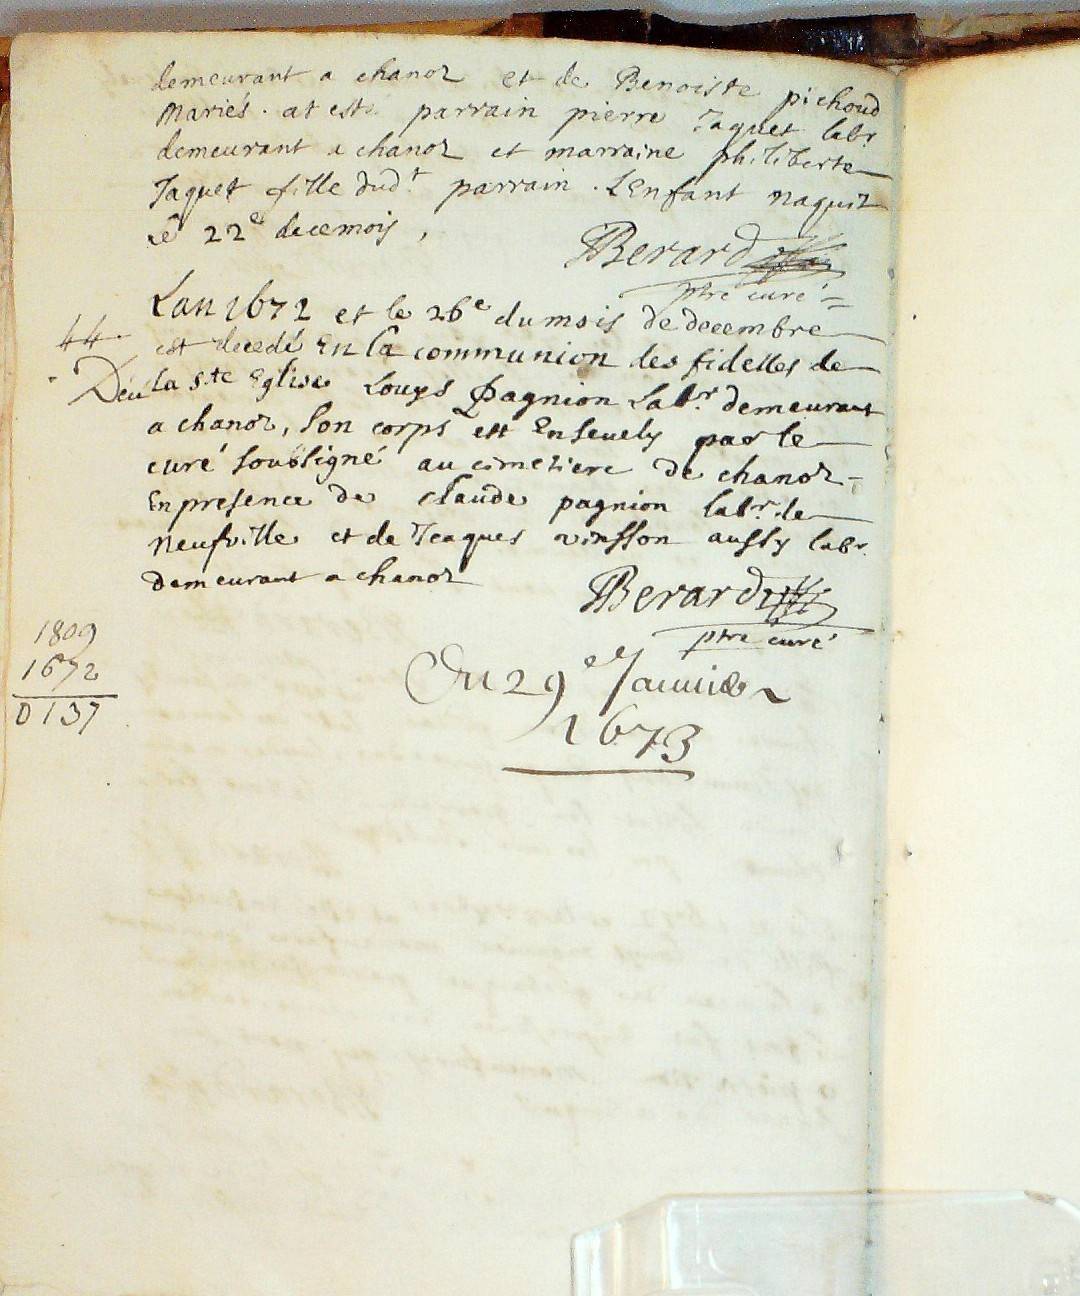 demeurant a chanoz et de Benoiste pichoud
Mariés. at esté parrain pierre Jaquet labr.
demeurant a chanoz et marraine philiberte
Jaquet fille dudt. parrain. LEnfant naquit
le 22e decemois,
Berard
ptre curé
Lan 1672 et le 26e du mois de decembre
44. est decedé En la communion des fidelles de
la ste Eglise Louys Pagnion Labr. demeurant
a chanoz, son corps est Ensevely par le
curé soubsigné au cimetiere de chanoz
En presence de Claude pagnion labr. de
Neufville et de Jeaques vinsson aussy labr.
demeurant a chanoz
Berard
ptre curé
1809
1672
0137
Du 29e Janvier
1673